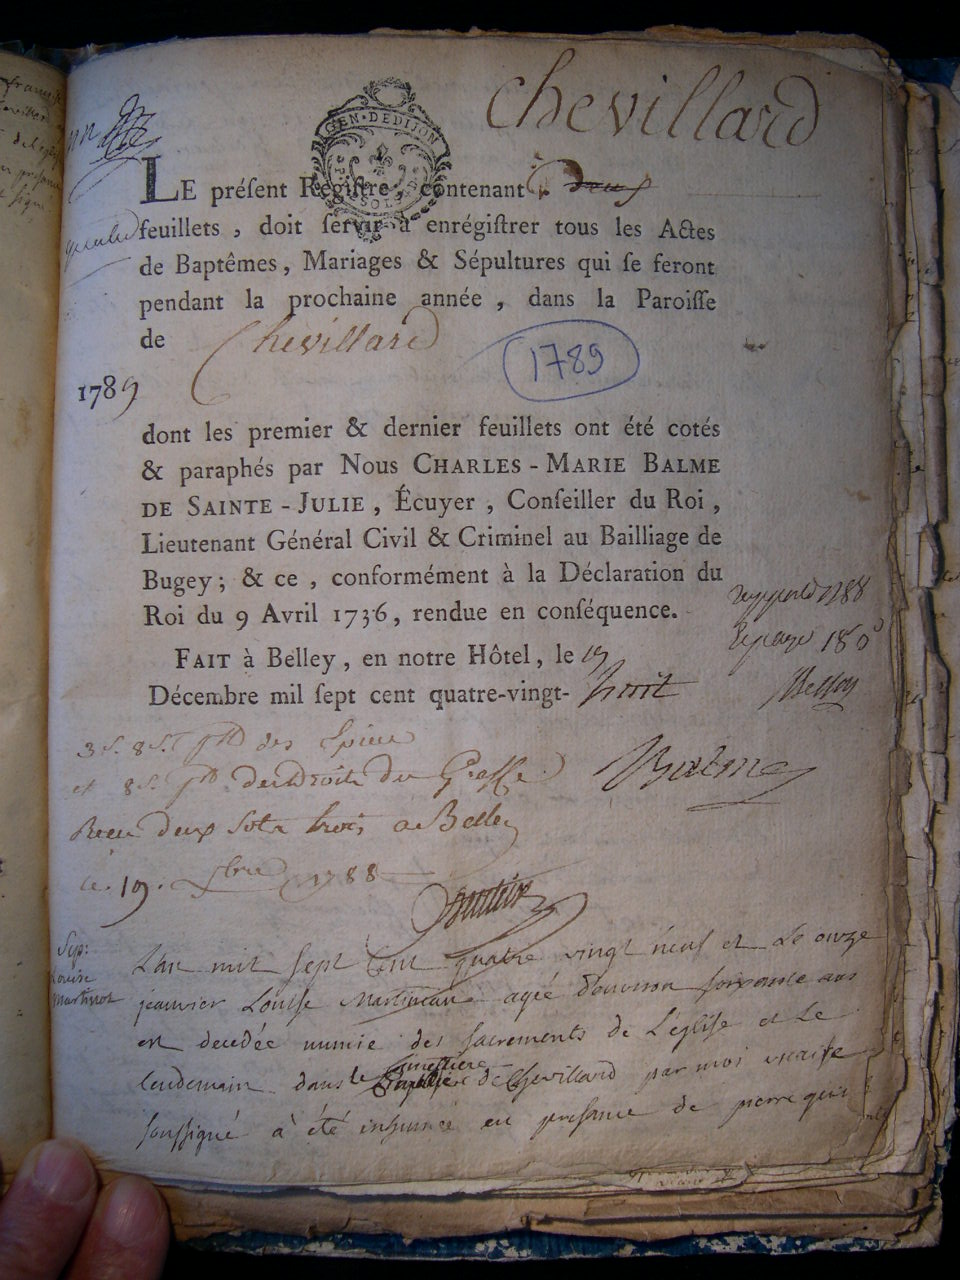 Chevillard
GEN·DEDIJON
LE préſent Regiſtre contenant
feuillets, doit ſervir à enrégiſtrer tous les Actes
de Baptêmes, Mariages & Sépultures qui ſe feront
pendant la prochaine année, dans la Paroiſſe
de Chevillard
1789
1789
dont les premier & dernier feuillets ont été cotés
& paraphés par Nous CHARLES-MARIE BALME
DE SAINTE-JULIE, Écuyer, Conſeiller du Roi,
Lieutenant Général Civil & Criminel au Bailliage de
Bugey; & ce, conformément à la Déclaration du
Roi du 9 Avril 1736, rendue en conſéquence.
FAIT à Belley, en notre Hôtel, le 19
Décembre mil ſept cent quatre-vingt-huit
Balme
3 s. 8 d. des
et 8 s. des Droits du Greffe
Receu deux sols trois a Belley
le 19. Xbre 1788
Sep:
Louise
Martinot
L'an mil sept cent quatre vingt neuf et le onze
janvier Louise agée d'environ soixante ans
est decedée munie des sacrements de L'église et le
lendemain dans le Cimettiere de Chevillard par moi vicaire
soussigné à été inhumée en presance de pierre